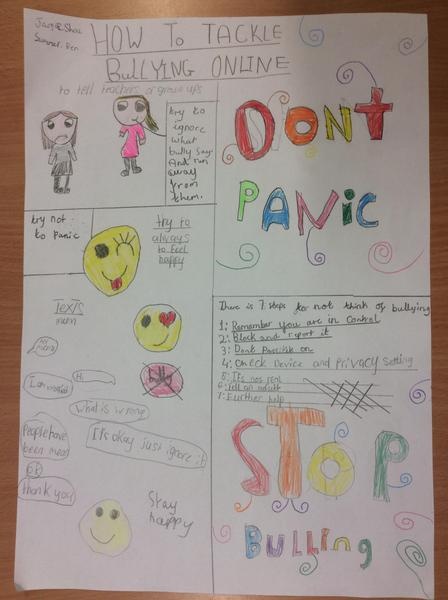 HOW TO TACKLE
BULLYING ONLINE
to tell teachers or grown ups
try to
ignore
what
bully say.
And run
away
from
them.
DONT
PANIC
try not
to panic
try to
always
to feel
happy
TEXTS
mem
Hi
I am worried
What is wrong
People have
been mean
It's okay just ignore it
ok
thank you
Stay
happy
There is 7 steps for not think of bullying
1: Remember you are in control
2: Block and report it
3: Dont
on
4: CHECK Device and PRIVACY SETTING
5: It's not real
6: Tell an adult
7: Further help
STOP
BULLING